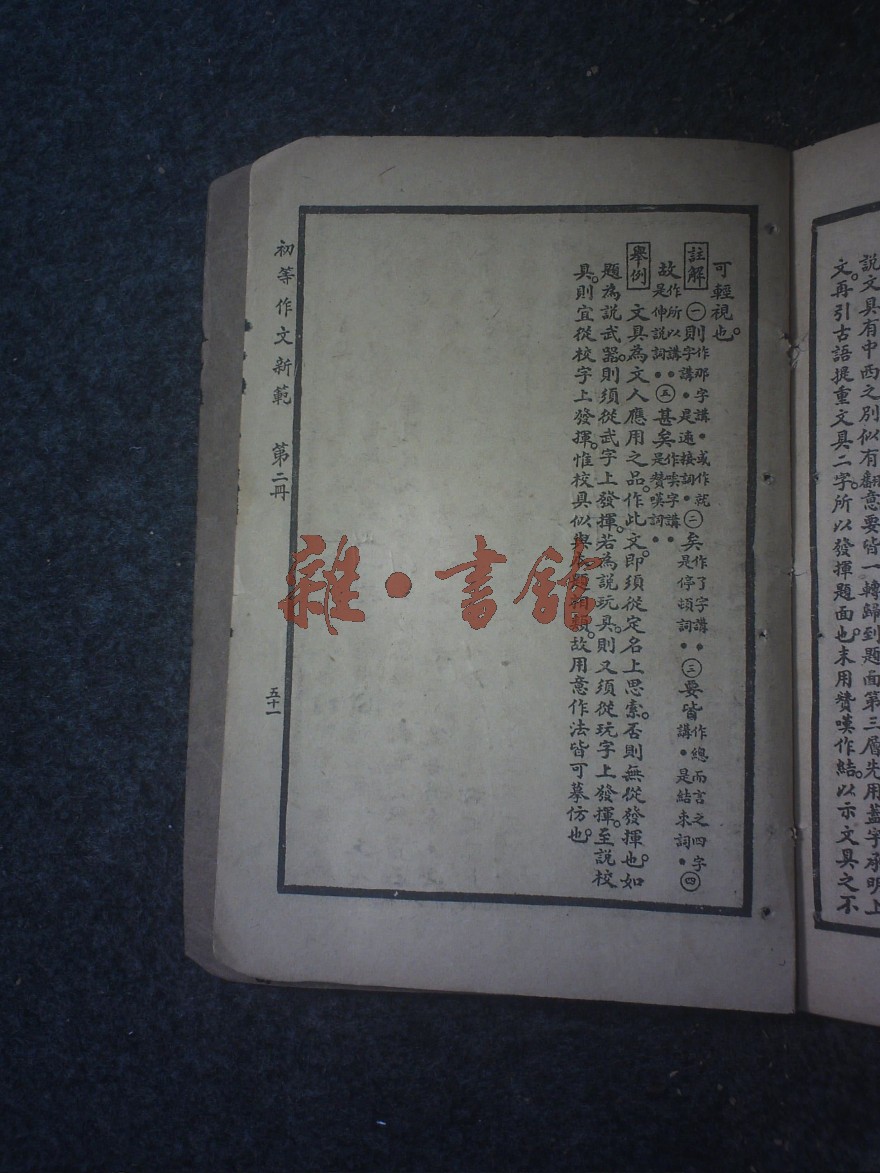 說文具有中西之別似有翻意要皆一轉歸到題面第三層先用蓋字承明上
文。再引古語提重文具二字。所以發揮題面也。末用贊嘆作結。以示文具之不
可輕視也。
註解 ㊀則作那字講●或作就字講●是遠接詞●㊁矣作了字講●是停頓詞●㊂要皆作總而言之四字講●是結束詞●㊃
故作所以講●是伸說詞●㊄甚矣作嘆字講●是贊嘆詞●
舉例 文具為文人應用之品。作此文。即須從定名上思索。否則無從發揮也。如
題為說武器。則須從武字上發揮。若為說玩具。則又須從玩字上發揮。至說校
具。則宜從校字上發揮。惟校具似與題相類。故用意作法皆可摹仿也。
初等作文新範 第二冊
五十一
雜·書館